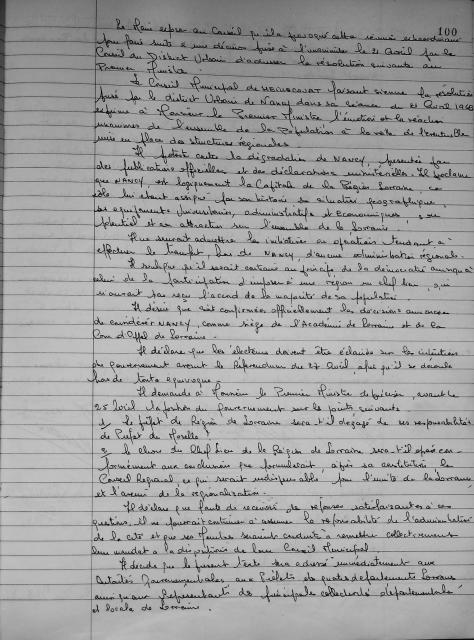 100
Le Maire expose au Conseil qu'il a provoqué cette réunion extraordinaire
pour faire suite à une décision prise à l'unanimité le 21 Avril par le
Conseil du District Urbain d'adresser la résolution suivante au
Premier Ministre
Le Conseil Municipal de HEILLECOURT faisant sienne la résolution
prise par le district Urbain de NANCY dans sa séance du 21 Avril 1969
exprime à Monsieur le Premier Ministre l'émotion et la réaction
unanimes de l'ensemble de la Population à la veille de l'éventuelle
mise en place des structures régionales.
Il proteste contre la dégradation de NANCY, présentée par
des publications officielles et des déclarations ministérielles. Il proclame
que NANCY, est logiquement la Capitale de la Région Lorraine, ce
rôle lui étant assigné par son histoire, sa situation géographique,
ses équipements Universitaires, administratifs et économiques, son
potentiel et son attraction sur l'ensemble de la Lorraine
Il ne saurait admettre les initiatives ou opérations tendant à
effectuer le transfert, hors de NANCY, d'aucune administration régionale.
Il souligne qu'il serait contraire au principe de la démocratie ainsi qu'à
celui de la participation d'imposer à une région un chef lieu, qui
n'aurait pas reçu l'accord de la majorité de sa population
Il désire que soit confirmées officiellement les décisions annoncées
de considérer NANCY, comme siège de l'Académie de Lorraine et de la
Cour d'Appel de Lorraine.
Il déclare que les électeurs doivent être éclairés sur les intentions
du gouvernement avant le Référendum du 27 Avril, afin qu'il se déroule
hors de toute équivoque
Il demande à Monsieur le Premier Ministre de préciser, avant le
25 Avril la position du Gouvernement sur les points suivants
1 Le préfet de Région de Lorraine sera-t'il dégagé de ses responsabilités
de Préfet de Moselle ?
2 le choix du Chef lieu de la Région de Lorraine sera-t'il opéré con-
formément aux conclusions que formulerait, après sa constitution le
Conseil Régional, ce qui serait indispensable pour l'unité de la Lorraine
et l'avenir de la régionalisation.
Il déclare que faute de recevoir des réponses satisfaisantes à ces
questions, il ne pourrait continuer à assumer la responsabilité de l'administration
de la cité et que ses Membres seraient conduits à remettre collectivement
leur mandat à la disposition de leur Conseil Municipal.
Il décide que le présent texte sera adressé immédiatement aux
Autorités Gouvernementales aux Préfets des quatre départements Lorrains
ainsi qu'aux Représentants des principales collectivités départementales
et locales de Lorraine.